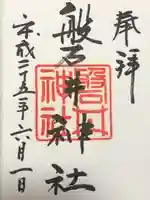 奉拝
磐井神社
平成二十五年六月一日
磐井神社